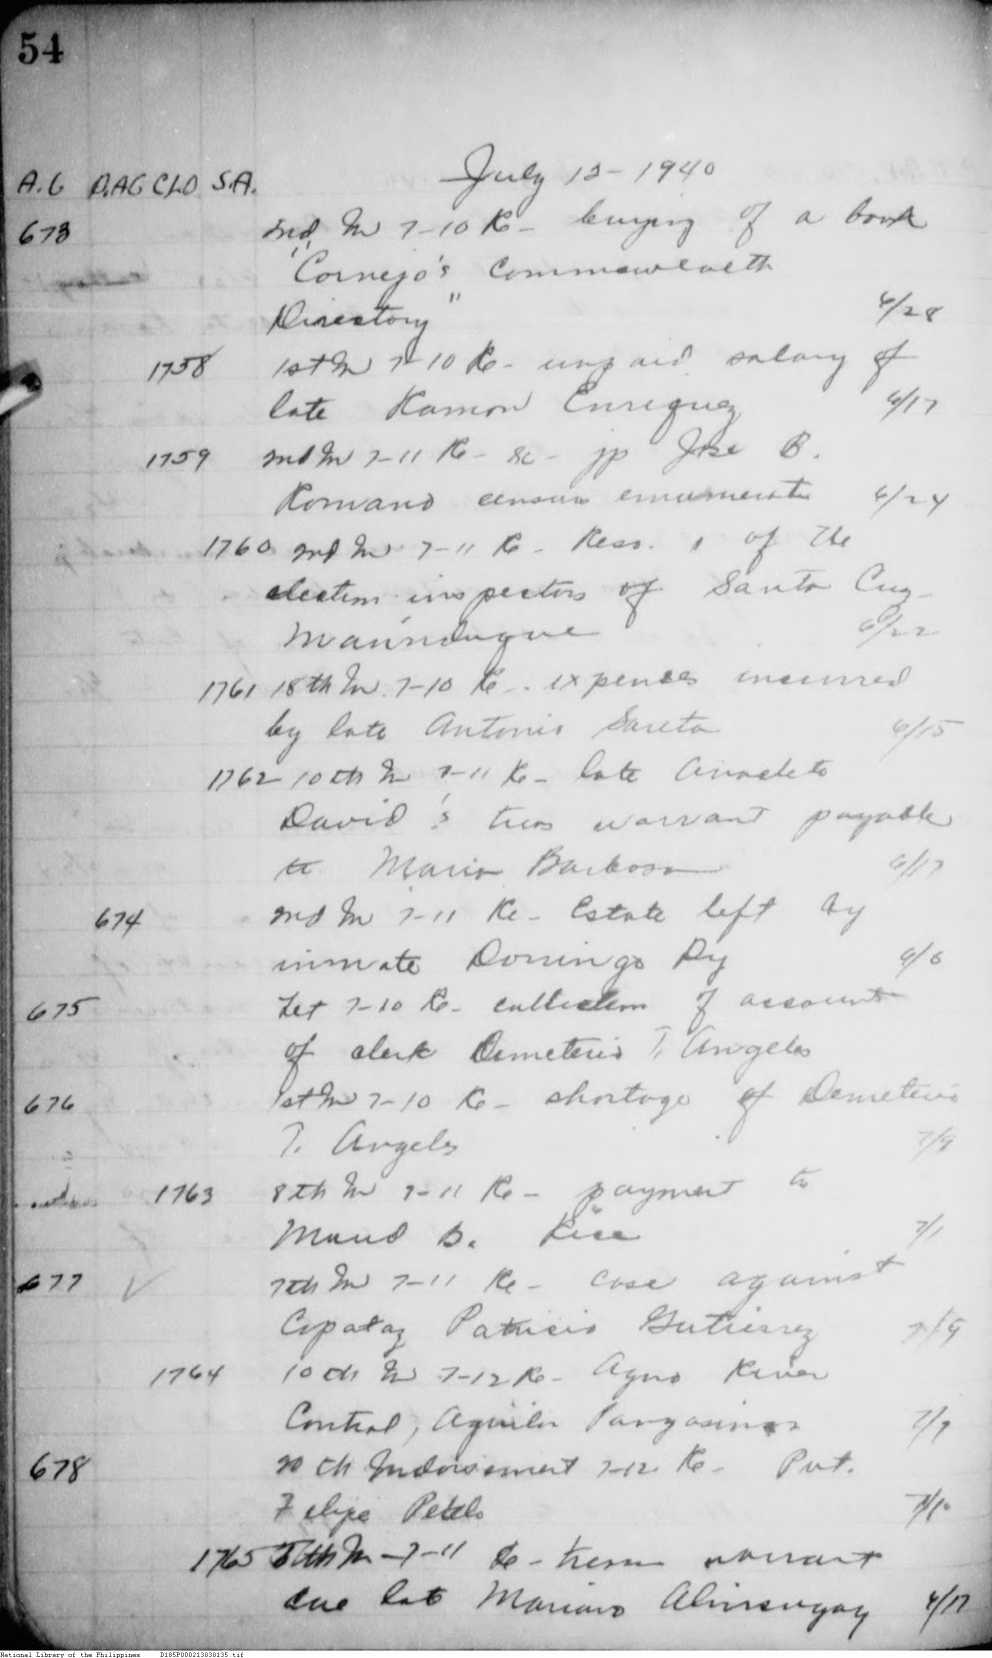 54
July 12-1940
A.G D.AG CLO S.A.
673 2nd In 7-10 Re- buying of a book
"Cornejo's Commonwealth
Directory" 6/28
1758 1st In 7-10 Re- unpaid salary of
late Ramon Enriquez 6/17
1759 2nd In 7-11 Re- sc- jp Jose B.
Romano census enumerator 6/24
1760 2nd In 7-11 Re- Ress. 1 of the
election inspectors of Santa Cruz-
Marinduque 6/22
1761 18th In. 7-10 Re- expenses incurred
by late Antonio 6/15
1762 10th In 7-11 Re- late Anacleto
David's treas warrant payable
to Maria Barbosa 6/17
674 2nd In 7-11 Re- Estate left by
inmate Domingo Dy 6/6
675 Let 7-10 Re- collection of account
of clerk Demetrio T. Angeles
676 1st In 7-10 Re- shortage of Demetrio
T. Angeles 7/9
1763 8th In 7-11 Re- payment to
Maud B. Rice 7/1
677 7th In 7-11 Re- case against
Capataz Patricio Gutierrez 7/9
1764 10th In 7-12 Re- Agno River
Control, Aguilar Pangasinan 7/9
678 20th Indorsement 7-12 Re- Pvt.
Felipe Petelo 7/10
1765 8th In-7-11 Re- treas warrant
due late Mariano 6/17
National Library of the Philippines D185P000213030135.tif